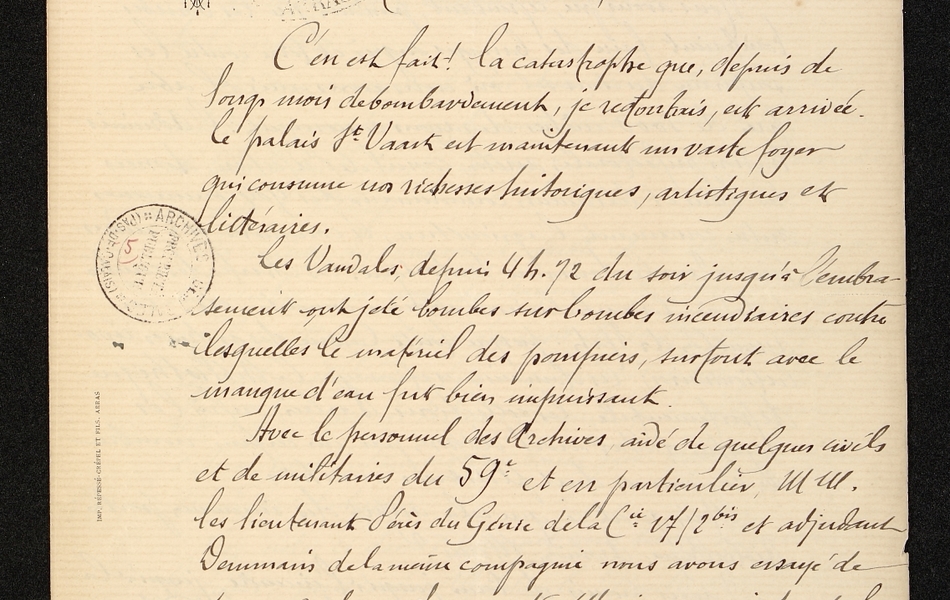 C'en est fait! la catastrophe que, depuis de
longs mois de bombardement, je redoutais, est arrivée.
Le palais St Vaast est maintenant un vaste foyer
qui consume nos richesses historiques, artistiques et
littéraires.
Les Vandales, depuis 4 h. 1/2 du soir jusqu'à l'embra-
sement ont jeté bombes sur bombes incendiaires contre
lesquelles le matériel des pompiers, surtout avec le
manque d'eau fut bien impuissant.
Avec le personnel des Archives, aidé de quelques civils
et de militaires du 59e et en particulier, MM.
les lieutenant du Génie de la Cie 17/2bis et adjudant
de la même compagnie nous avons essayé de
ARCHIVES
IMP. RÉPESSÉ-CRÉPEL ET FILS, ARRAS